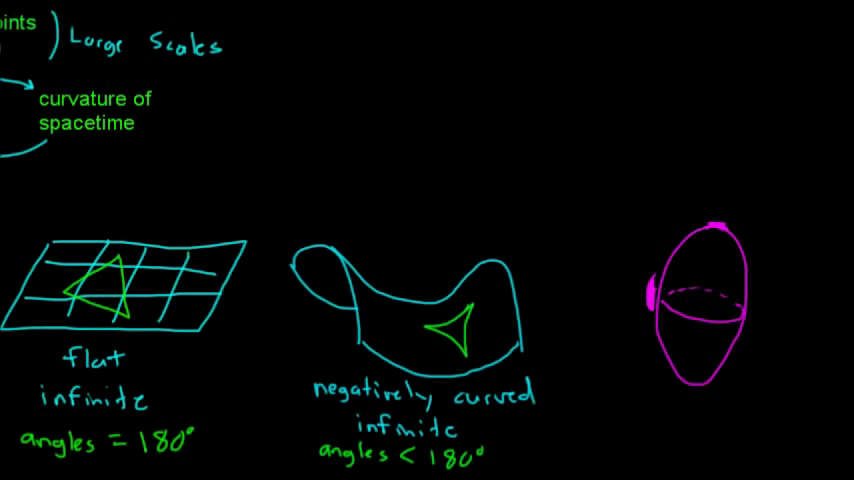 oints
) Large Scales
curvature of
spacetime
flat
infinite
angles = 180°
negatively curved
infinite
angles < 180°